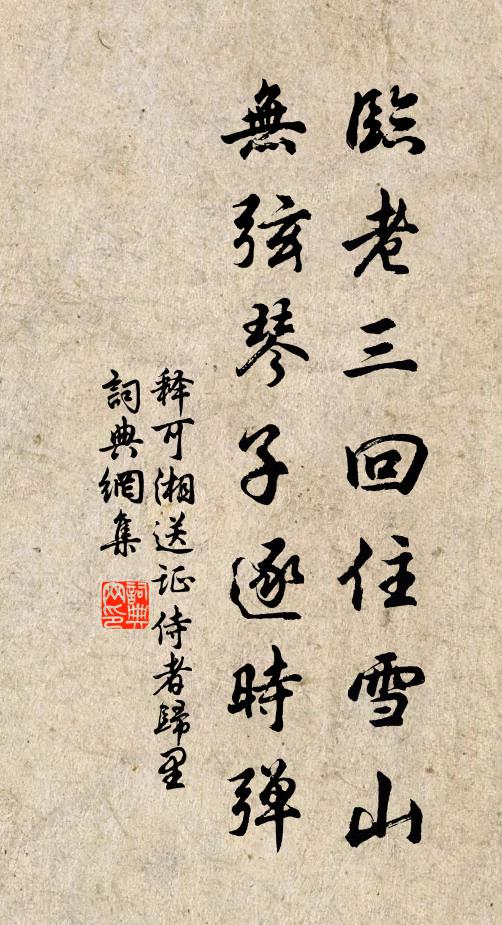 臨老三回住雪山
無弦琴子逐時弹
释可湘送证侍者歸里
詞典網集
詞典網印